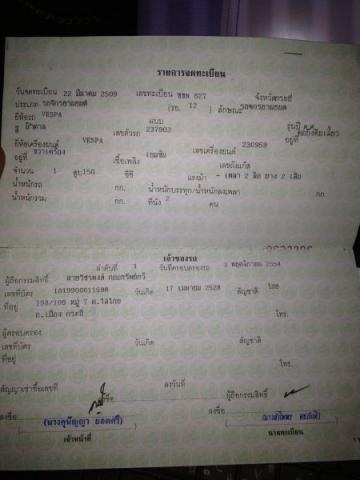 รายการจดทะเบียน
วันจดทะเบียน 22 มีนาคม 2509 เลขทะเบียน 627 จังหวัดกระบี่
ประเภท รถจักรยานยนต์ (รย. 12 ) ลักษณะ รถจักรยานยนต์
ยี่ห้อรถ VESPA แบบ รุ่นปี
สี เลขตัวรถ 237903 อยู่ที่
ยี่ห้อเครื่องยนต์ VESPA เลขเครื่องยนต์ 230959
อยู่ที่ ขวาเครื่อง เชื้อเพลิง เบนซิน เลขถังแก๊ส
จำนวน 1 สูบ 150 ซีซี แรงม้า - เพลา 2 ล้อ ยาง 2 เส้น
น้ำหนักรถ กก. น้ำหนักบรรทุก/น้ำหนักลงเพลา กก
น้ำหนักรวม กก. ที่นั่ง 2 คน
เจ้าของรถ
ลำดับที่ 1 วันที่ครอบครองรถ 3 พฤศจิกายน 2554
ผู้ถือกรรมสิทธิ์
เลขที่บัตร วันเกิด 17 เมษายน 2528 สัญชาติ ไทย
ที่อยู่ 193/109 หมู่ 7 ต.ไสไทย
อ.เมือง กระบี่ โทร.
ผู้ครอบครอง
เลขที่บัตร วันเกิด สัญชาติ
ที่อยู่ โทร.
สัญญาเช่าซื้อเลขที่ ลงวันที่ ผู้ถือกรรมสิทธิ์
ลงชื่อ ลงชื่อ
เจ้าหน้าที่ นายทะเบียน